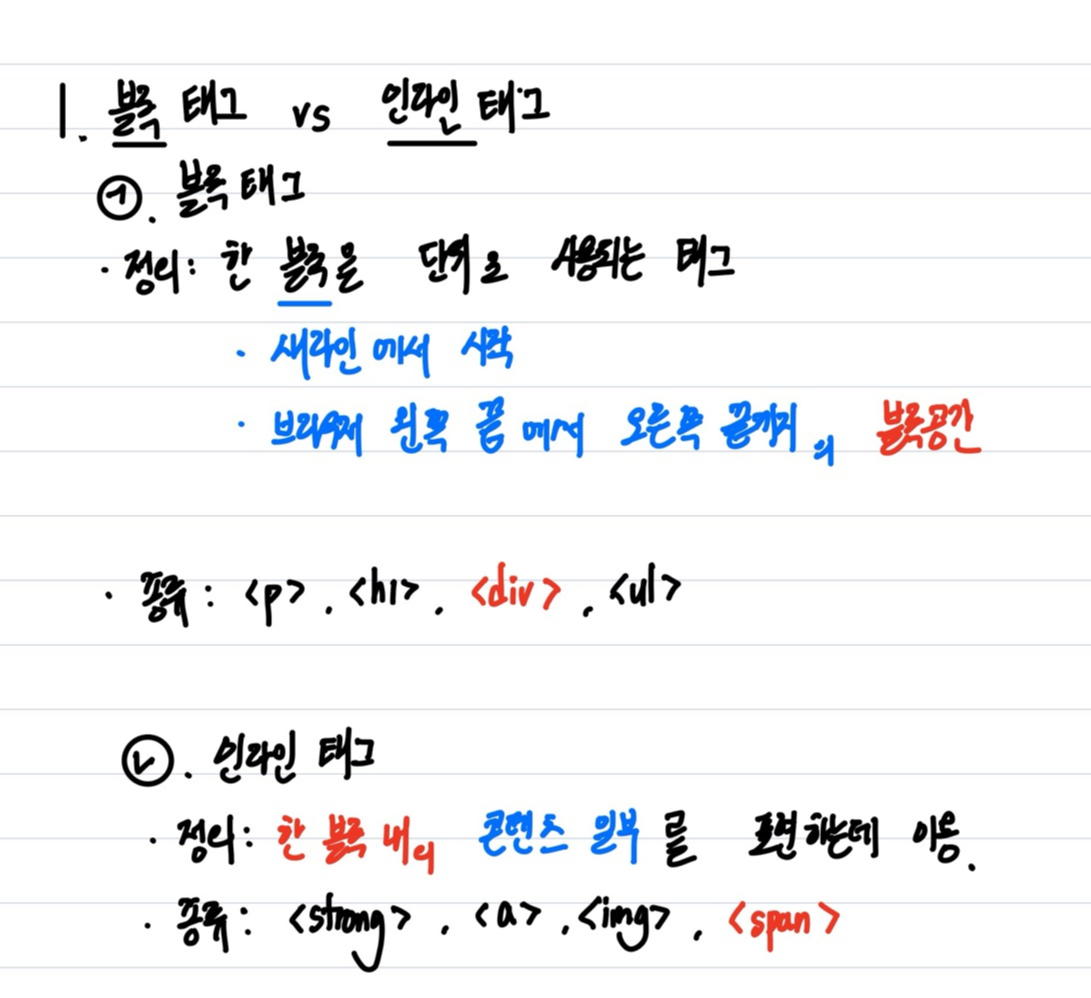 1. 블록 태그 vs 인라인 태그
㉠. 블록 태그
· 정의: 한 블록을 단위로 사용되는 태그
· 새라인에서 시작
· 브라우저 왼쪽 끝에서 오른쪽 끝까지의 블록공간
· 종류: <p>, <h1>, <div>, <ul>
㉡. 인라인 태그
· 정의: 한 블록 내의 콘텐츠 일부를 표현하는데 이용.
· 종류: <strong>, <a>, <img>, <span>